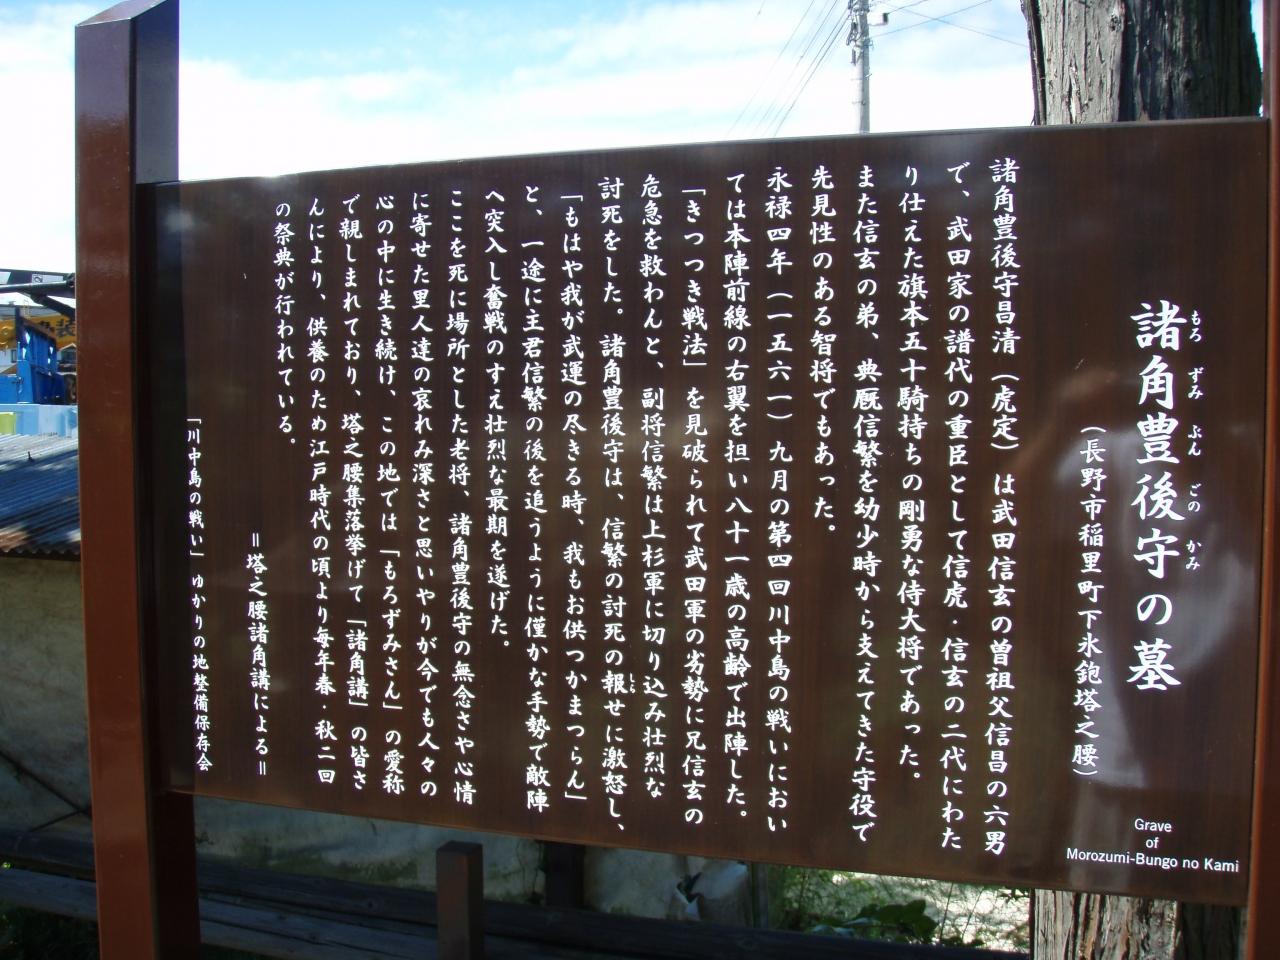 諸角豊後守の墓
もろ ずみ ぶん ごの かみ
（長野市稲里町下氷鉋塔之腰）
Grave
of
Morozumi-Bungo no Kami
諸角豊後守昌清（虎定）は武田信玄の曽祖父信昌の六男
で、武田家の譜代の重臣として信虎・信玄の二代にわた
り仕えた旗本五十騎持ちの剛勇な侍大将であった。
また信玄の弟、典厩信繁を幼少時から支えてきた守役で
先見性のある智将でもあった。
永禄四年（一五六一）九月の第四回川中島の戦いにおい
ては本陣前線の右翼を担い八十一歳の高齢で出陣した。
「きつつき戦法」を見破られて武田軍の劣勢に兄信玄の
危急を救わんと、副将信繁は上杉軍に切り込み壮烈な
討死をした。諸角豊後守は、信繁の討死の報せに激怒し、
しら
「もはや我が武運の尽きる時、我もお供つかまつらん」
と、一途に主君信繁の後を追うように僅かな手勢で敵陣
へ突入し奮戦のすえ壮烈な最期を遂げた。
ここを死に場所とした老将、諸角豊後守の無念さや心情
に寄せた里人達の哀れみ深さと思いやりが今でも人々の
心の中に生き続け、この地では「もろずみさん」の愛称
で親しまれており、塔之腰集落挙げて「諸角講」の皆さ
んにより、供養のため江戸時代の頃より毎年春・秋二回
の祭典が行われている。
＝塔之腰諸角講による＝
「川中島の戦い」ゆかりの地整備保存会